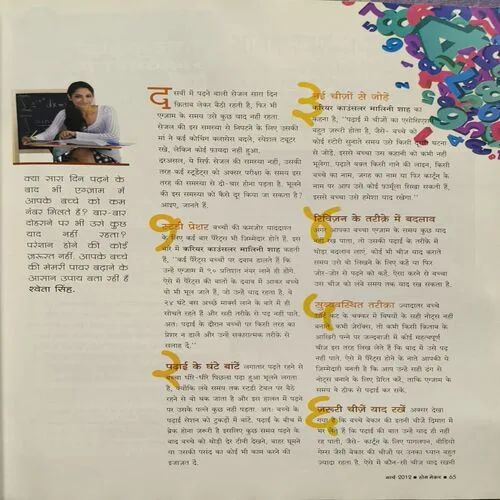 क्या सारा दिन पढ़ने के
बाद भी एग्ज़ाम में
आपके बच्चे को कम
नंबर मिलते हैं? बार-बार
दोहराने पर भी उसे कुछ
याद नहीं रहता?
परेशान होने की कोई
ज़रूरत नहीं. आपके बच्चे
की मेमरी पावर बढ़ाने के
आसान उपाय बता रही हैं
श्वेता सिंह.
दसवीं में पढ़ने वाली सेजल सारा दिन
क़िताब लेकर बैठी रहती है, फिर भी
एग्ज़ाम के समय उसे कुछ याद नहीं रहता.
सेजल की इस समस्या से निपटने के लिए उसकी
मां ने कई कोचिंग क्लासेस बदले, स्पेशल ट्यूटर
रखे, लेकिन कोई फायदा नहीं हुआ.
दरअसल, ये सिर्फ़ सेजल की समस्या नहीं, उसकी
तरह कई स्टूडेंट्स को अक्सर परीक्षा के समय इस
तरह की समस्या से दो-चार होना पड़ता है. भूलने
की इस समस्या को कैसे दूर किया जा सकता है?
आइए, जानते हैं.
1
स्टडी प्रेशर बच्चों की कमज़ोर याददाश्त
के लिए कई बार पैरेंट्स भी ज़िम्मेदार होते हैं. इस
बारे में करियर काउंसलर मालिनी शाह कहती
हैं, "कई पैरेंट्स बच्चों पर दबाव डालते हैं कि
उन्हें एग्ज़ाम में ९० प्रतिशत नंबर लाने ही होंगे.
ऐसे में पैरेंट्स की बातों के दबाव में आकर बच्चे
वो भी भूल जाते हैं, जो उन्हें याद रहता है. वे
२४ घंटे बस अच्छे मार्क्स लाने के बारे में ही
सोचते रहते हैं और सही तरीक़े से पढ़ नहीं पाते.
अतः पढ़ाई के दौरान बच्चों पर किसी तरह का
प्रेशर न डालें और उन्हें सकारात्मक तरीक़े से
सलाह दें."
2
पढ़ाई के घंटे बांटें लगातार पढ़ते रहने से
बच्चा धीरे-धीरे पिछला पढ़ा हुआ भूलने लगता
है, क्योंकि लंबे समय तक स्टडी टेबल पर बैठे
रहने से वो थक जाता है और इस हालत में पढ़ने
पर उसके पल्ले कुछ नहीं पड़ता. अतः बच्चे के
पढ़ाई सेशन को टुकड़ों में बांटें. पढ़ाई के बीच में
ब्रेक होना ज़रूरी है इसलिए कुछ समय पढ़ने के
बाद बच्चे को थोड़ी देर टीवी देखने, बाहर घूमने
या उसकी पसंद का कोई भी काम करने की
इजाज़त दें.
3
नई चीज़ों से जोड़ें
करियर काउंसलर मालिनी शाह का
कहना है, "पढ़ाई में चीज़ों का एसोसिएशन
बहुत ज़रूरी होता है, जैसे- बच्चे को
कोई स्टोरी सुनाते समय उसे किसी घटना
से जोड़ें. इससे बच्चा उस कहानी को कभी नहीं
भूलेगा. पढ़ाते वक़्त किसी गाने की लाइन, किसी
बच्चे का नाम, जगह का नाम या फिर कार्टून के
नाम पर आप उसे कोई फॉर्मूला सिखा सकती हैं,
इससे बच्चा उसे हमेशा याद रखेगा."
रिविज़न के तरीक़े में बदलाव
अगर आपका बच्चा एग्ज़ाम के समय कुछ याद
नहीं रख पाता, तो उसकी पढ़ाई के तरीक़े में
थोड़ा बदलाव लाएं. कोई भी चीज़ याद कराते
समय उसे वो लिखने के लिए कहें या फिर
ज़ोर-ज़ोर से पढ़ने को कहें. ऐसा करने से बच्चा
उस चीज़ को लंबे समय तक याद रख सकता है.
सुव्यवस्थित तरीक़ा ज़्यादातर बच्चे
शॉर्ट कट के चक्कर में विषयों के सही नोट्स नहीं
बनाते, कभी जेरॉक्स, तो कभी किसी किताब के
आख़िरी पन्ने पर जल्दबाज़ी में कोई महत्वपूर्ण
चीज़ इस तरह लिख लेते हैं कि बाद में उसे पढ़
नहीं पाते. ऐसे में पैरेंट्स होने के नाते आपकी ये
ज़िम्मेदारी बनती है कि आप उन्हें सही ढंग से
नोट्स बनाने के लिए प्रेरित करें, ताकि एग्ज़ाम के
समय वे ठीक से पढ़ाई कर सकें.
ज़रूरी चीज़ें याद रखें अक्सर देखा
गया है कि बच्चे बेकार की इतनी चीज़ें दिमाग़ में
भर लेते हैं कि पढ़ाई की बात उन्हें याद ही नहीं
रह पाती, जैसे- कार्टून के लिए पागलपन, वीडियो
गेम्स जैसी बेकार की चीज़ों पर उनका ध्यान बहुत
ज़्यादा रहता है. ऐसे में कौन-सी चीज़ याद रखनी
मार्च 2012 ■ होम मेकर ■ 65